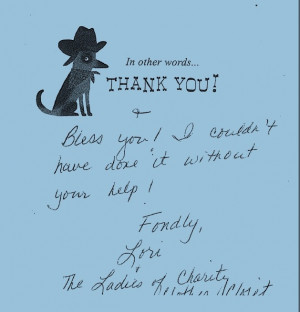 In other words...
THANK YOU!
&
Bless you! I couldn't
have done it without
your help!
Fondly,
Lori
The Ladies of Charity